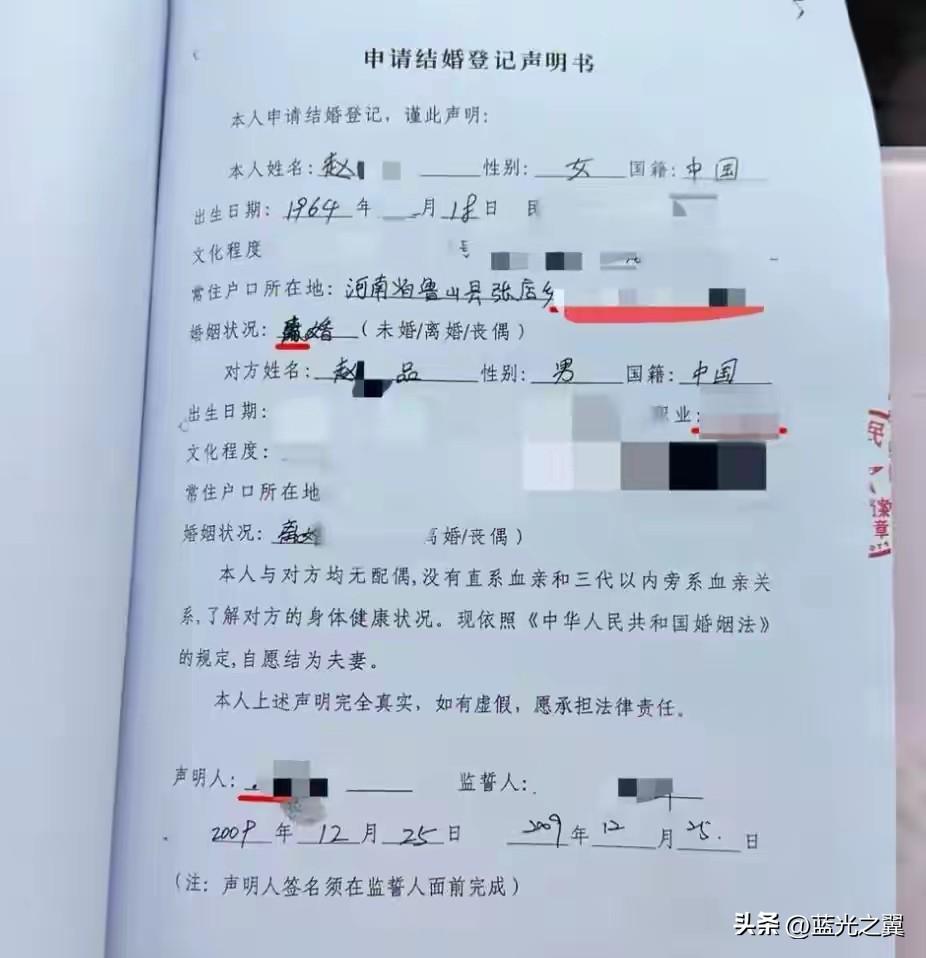 申请结婚登记声明书
本人申请结婚登记，谨此声明：
本人姓名：赵 性别：女 国籍：中国
出生日期：1964年 月18日
文化程度
常住户口所在地：河南省鲁山县张店乡
婚姻状况：离婚（未婚/离婚/丧偶）
对方姓名：赵 品 性别：男 国籍：中国
出生日期： 职业：
文化程度：
常住户口所在地
婚姻状况：离婚 离婚/丧偶）
本人与对方均无配偶,没有直系血亲和三代以内旁系血亲关
系,了解对方的身体健康状况。现依照《中华人民共和国婚姻法》
的规定,自愿结为夫妻。
本人上述声明完全真实，如有虚假，愿承担法律责任。
声明人： 监誓人：
2009年12月25日 2009年12月25日
（注：声明人签名须在监誓人面前完成）
民
徽
章
头条 @蓝光之翼